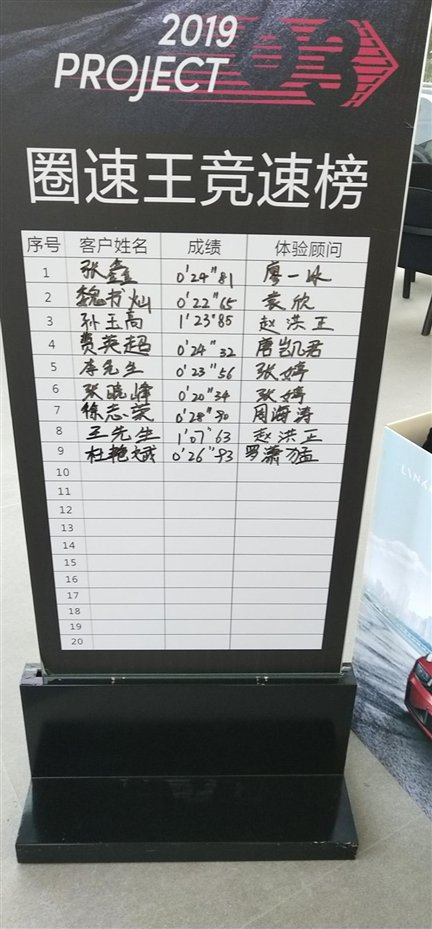 2019
PROJECT 03
圈速王竞速榜
序号 客户姓名 成绩 体验顾问
1 张鑫 0'24"81 廖一冰
2 魏书灿 0'22"65 袁欣
3 孙玉高 1'23"85 赵洪正
4 费英超 0'24"32 唐凯君
5 李先生 0'23"56 张婷
6 张晓峰 0'20"34 张婷
7 徐志荣 0'28"90 周海涛
8 王先生 1'07"63 赵洪正
9 杜艳斌 0'26"93 罗萧猛
10
11
12
13
14
15
16
17
18
19
20
LYNK